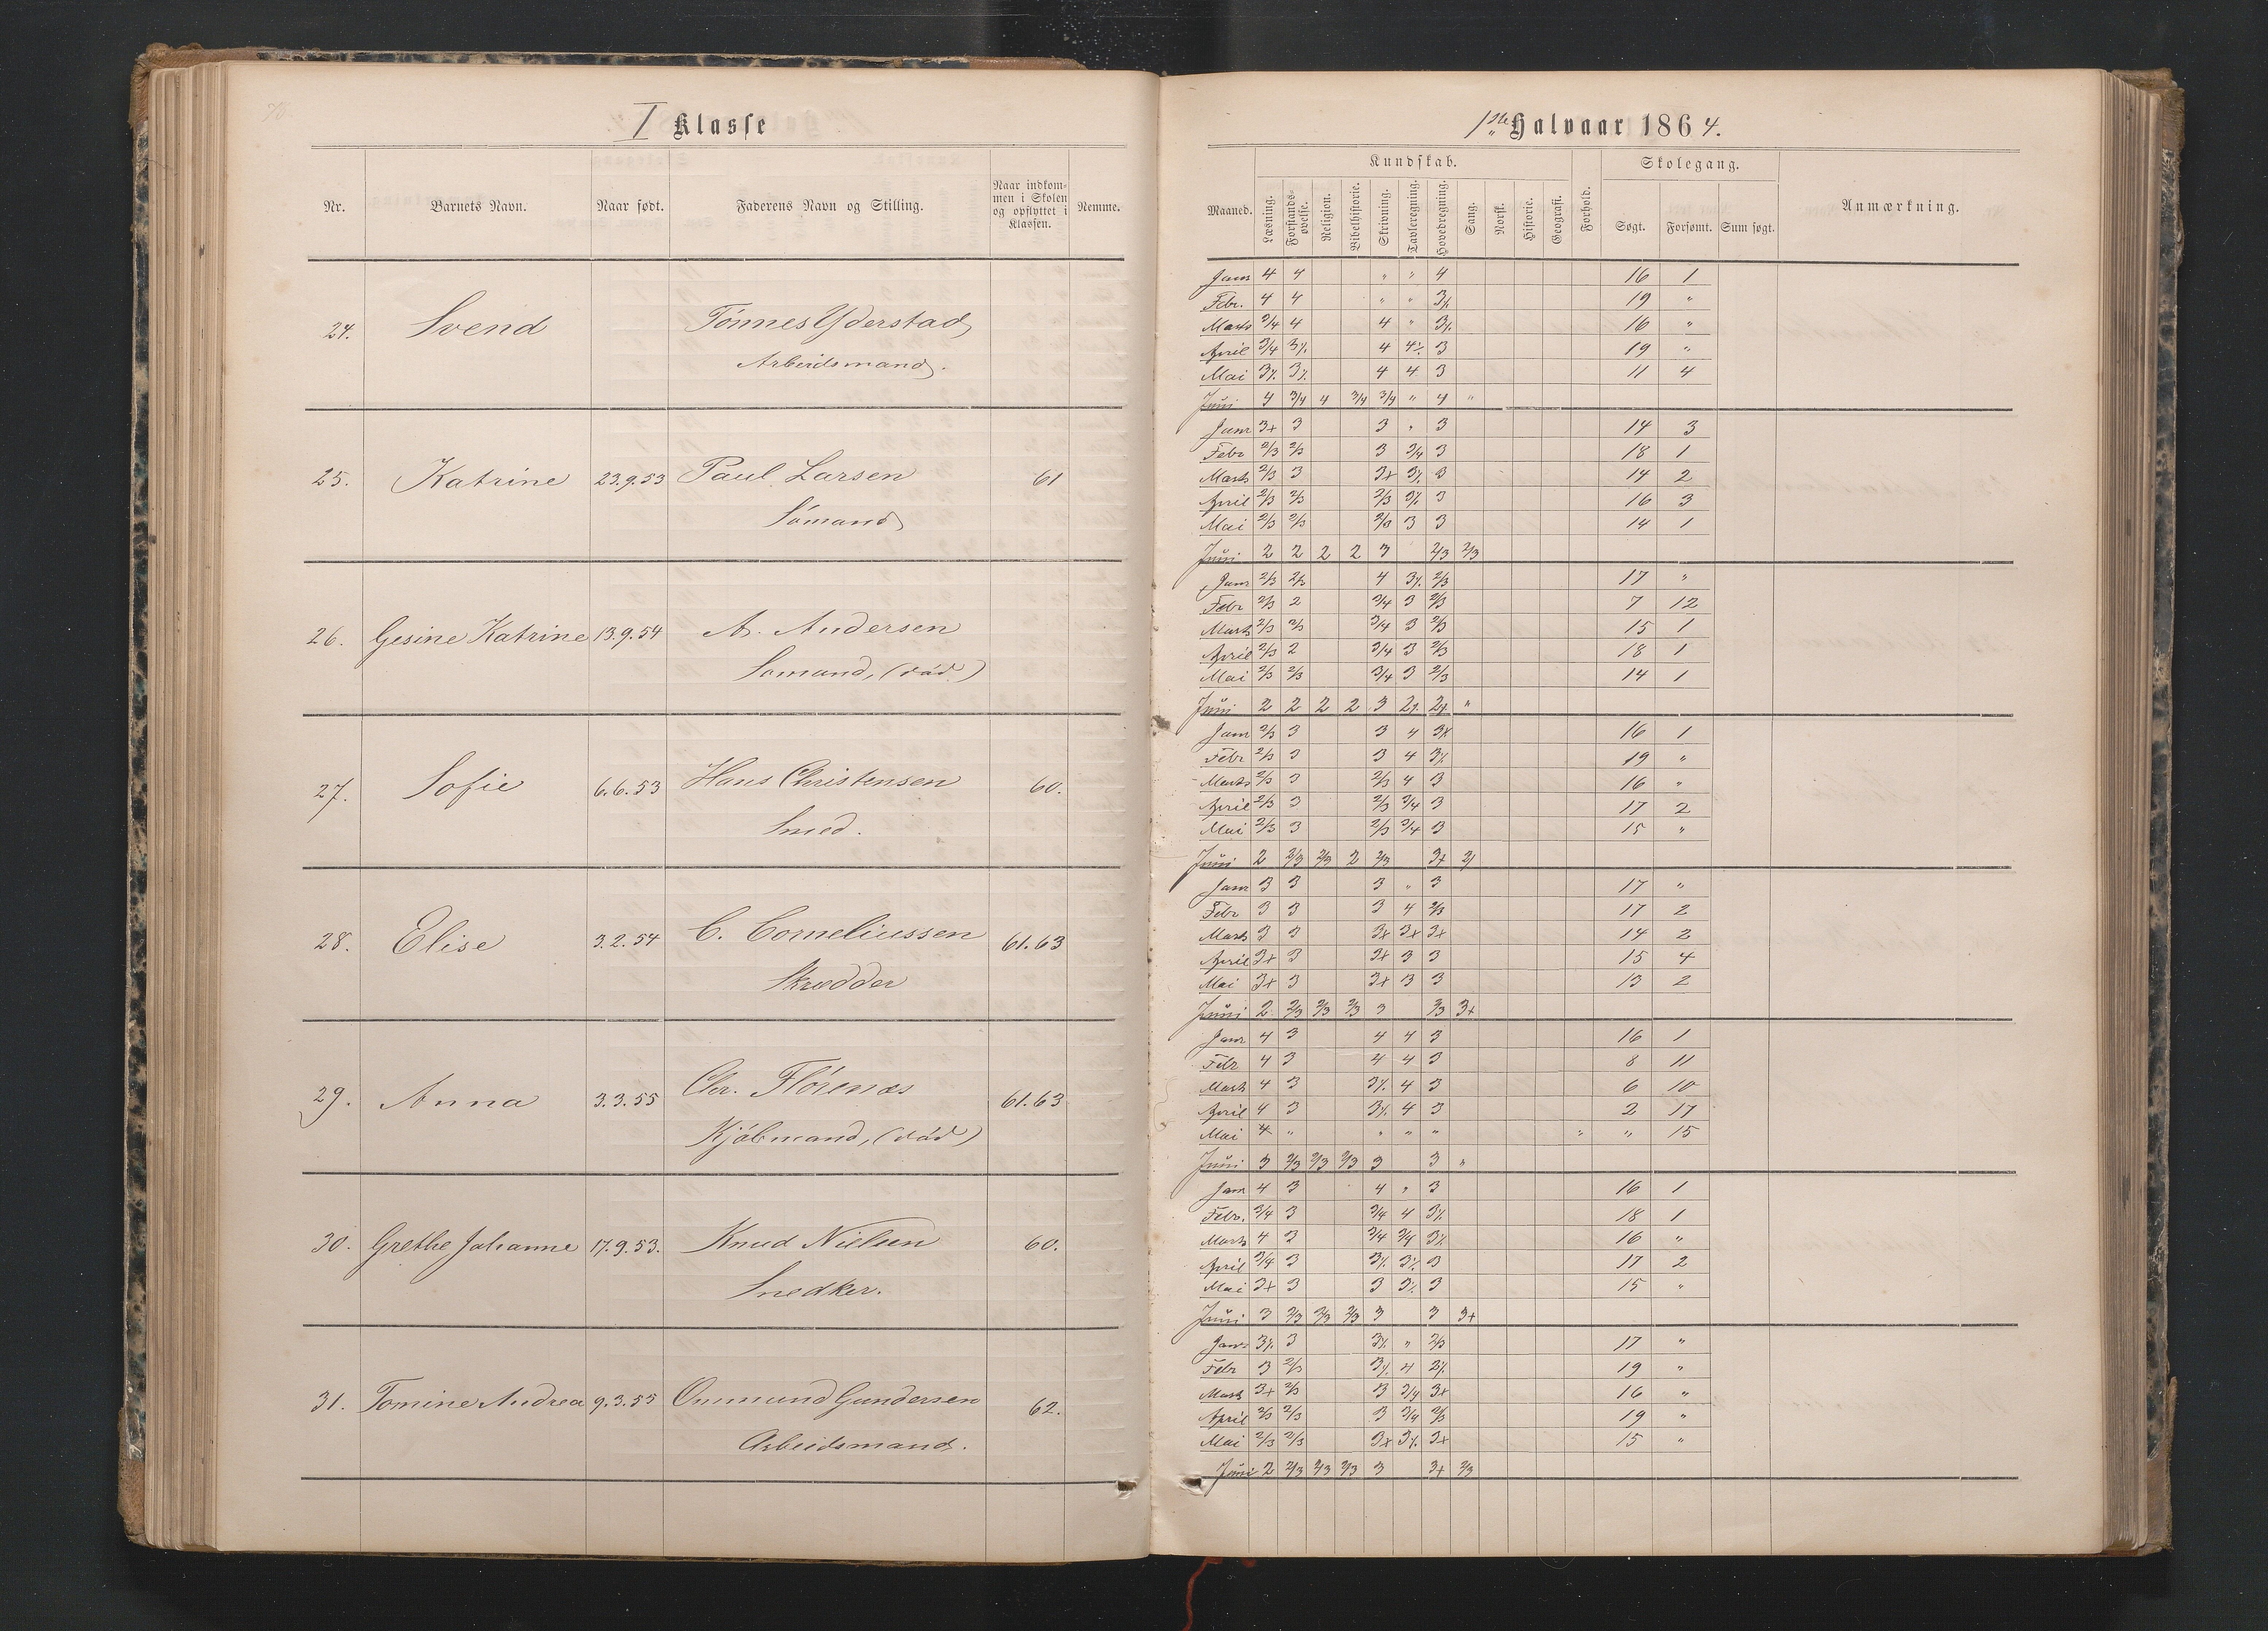 I Klasse
Nr. Barnets Navn. Naar født. Faderens Navn og Stilling. Naar indkommen i Skolen og opflyttet i Klassen. Nemme.
24. Svend Tönnes Yderstad
Arbeidsmand.
25. Katrine 23.9.53 Paul Larsen 61
Sömand
26. Gesine Katrine 13.9.54 A. Andersen
Sömand, (död)
27. Sofie 6.6.53 Hans Christensen 60.
Smed.
28. Elise 3.2.54 C. Corneliussen 61.63
Skrædder
29. Anna 3.3.55 Chr. Flörenæs 61.63
Kjöbmand, (död)
30. Grethe Johanne 17.9.53. Knud Nielsen 60.
Snedker.
31. Tomine Andrea 9.3.55 Ommund Gundersen 62.
Arbeidsmand.
1ste Halvaar 1864.
Kundskab. Skolegang.
Maaned. Læsning. Forstandsøvelse. Religion. Bibelhistorie. Skrivning. Tavleregning. Hovedregning. Sang. Norsk. Historie. Geografi. Forhold. Søgt. Forsømt. Sum søgt. Anmærkning.
Janr 4 4 " " 4 16 1
Febr. 4 4 " " 3⁒ 19 "
Marts 3/4 4 4 " 3⁒ 16 "
April 3/4 3⁒ 4 4⁒ 3 19 "
Mai 3⁒ 3⁒ 4 4 3 11 4
Juni 4 3/4 4 3/4 3/4 " 4 "
Janr 3+ 3 3 " 3 14 3
Febr 2/3 2/3 3 3/4 3 18 1
Marts 2/3 3 3+ 3⁒ 3 14 2
April 2/3 2/3 2/3 3⁒ 3 16 3
Mai 2/3 2/3 2/3 3 3 14 1
Juni 2 2 2 2 3 2/3 2/3
Janr 2/3 2/3 4 3⁒ 2/3 17 "
Febr 2/3 2 3/4 3 2/3 7 12
Marts 2/3 2/3 3/4 3 2/3 15 1
April 2/3 2 3/4 3 2/3 18 1
Mai 2/3 2/3 3/4 3 2/3 14 1
Juni 2 2 2 2 3 2⁒ 2+ "
Janr 2/3 3 3 4 3+ 16 1
Febr 2/3 3 3 4 3⁒ 19 "
Marts 2/3 3 2/3 4 3 16 "
April 2/3 3 2/3 3/4 3 17 2
Mai 2/3 3 2/3 3/4 3 15 "
Juni 2 2/3 2/3 2 2/3 3+
Janr 3 3 3 " 3 17 "
Febr 3 3 3 4 2/3 17 2
Marts 3 3 3+ 3+ 3+ 14 2
April 3+ 3 3+ 3 3 15 4
Mai 3+ 3 3+ 3 3 13 2
Juni 2 2/3 2/3 2/3 3 2/3 3+
Janr 4 3 4 4 3 16 1
Febr 4 3 4 4 3 8 11
Marts 4 3 3⁒ 4 3 6 10
April 4 3 3⁒ 4 3 2 17
Mai 4 " " " " " " 15
Juni 3 2/3 2/3 2/3 3 3 "
Janr 4 3 4 " 3 16 1
Febr. 3/4 3 3/4 4 3⁒ 18 1
Marts 4 3 3/4 3/4 3⁒ 16 "
April 3/4 3 3⁒ 3⁒ 3 17 2
Mai 3+ 3 3 3⁒ 3 15 "
Juni 3 2/3 2/3 2/3 3 3 3+
Janr 3⁒ 3 3⁒ " 2/3 17 "
Febr 3 2/3 3⁒ 4 2⁒ 19 "
Marts 3+ 2/3 3 3/4 3+ 16 "
April 2/3 2/3 3 3/4 2/3 19 "
Mai 2/3 2/3 3+ 3⁒ 3+ 15 "
Juni 2 2/3 2/3 2/3 3 3+ 2/3